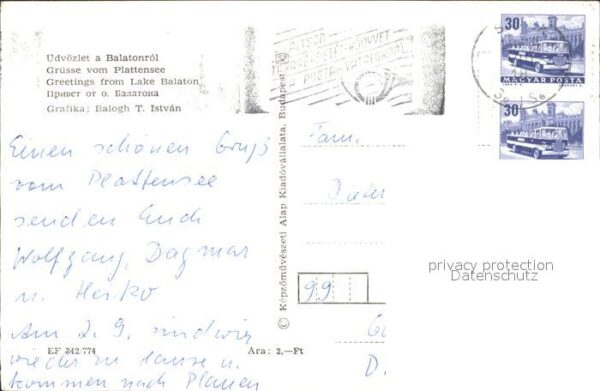 Üdvözlet a Balatonról
Grüsse vom Plattensee
Greetings from Lake Balaton
Привет от о. Балатона
Grafika: Balogh T. István
Einen schönen Gruß
vom Plattensee
senden Euch
Wolfgang, Dagmar
u. Heiko
Am 2. 9. sind wir
wieder zu Hause u.
kommen nach Plauen
EF 342/774
Ara: 2,—Ft
© Képzőművészeti Alap Kiadóvállalata, Budapest
30f
MAGYAR POSTA
30f
Fam.
Dieter
99
D.
privacy protection
Datenschutz